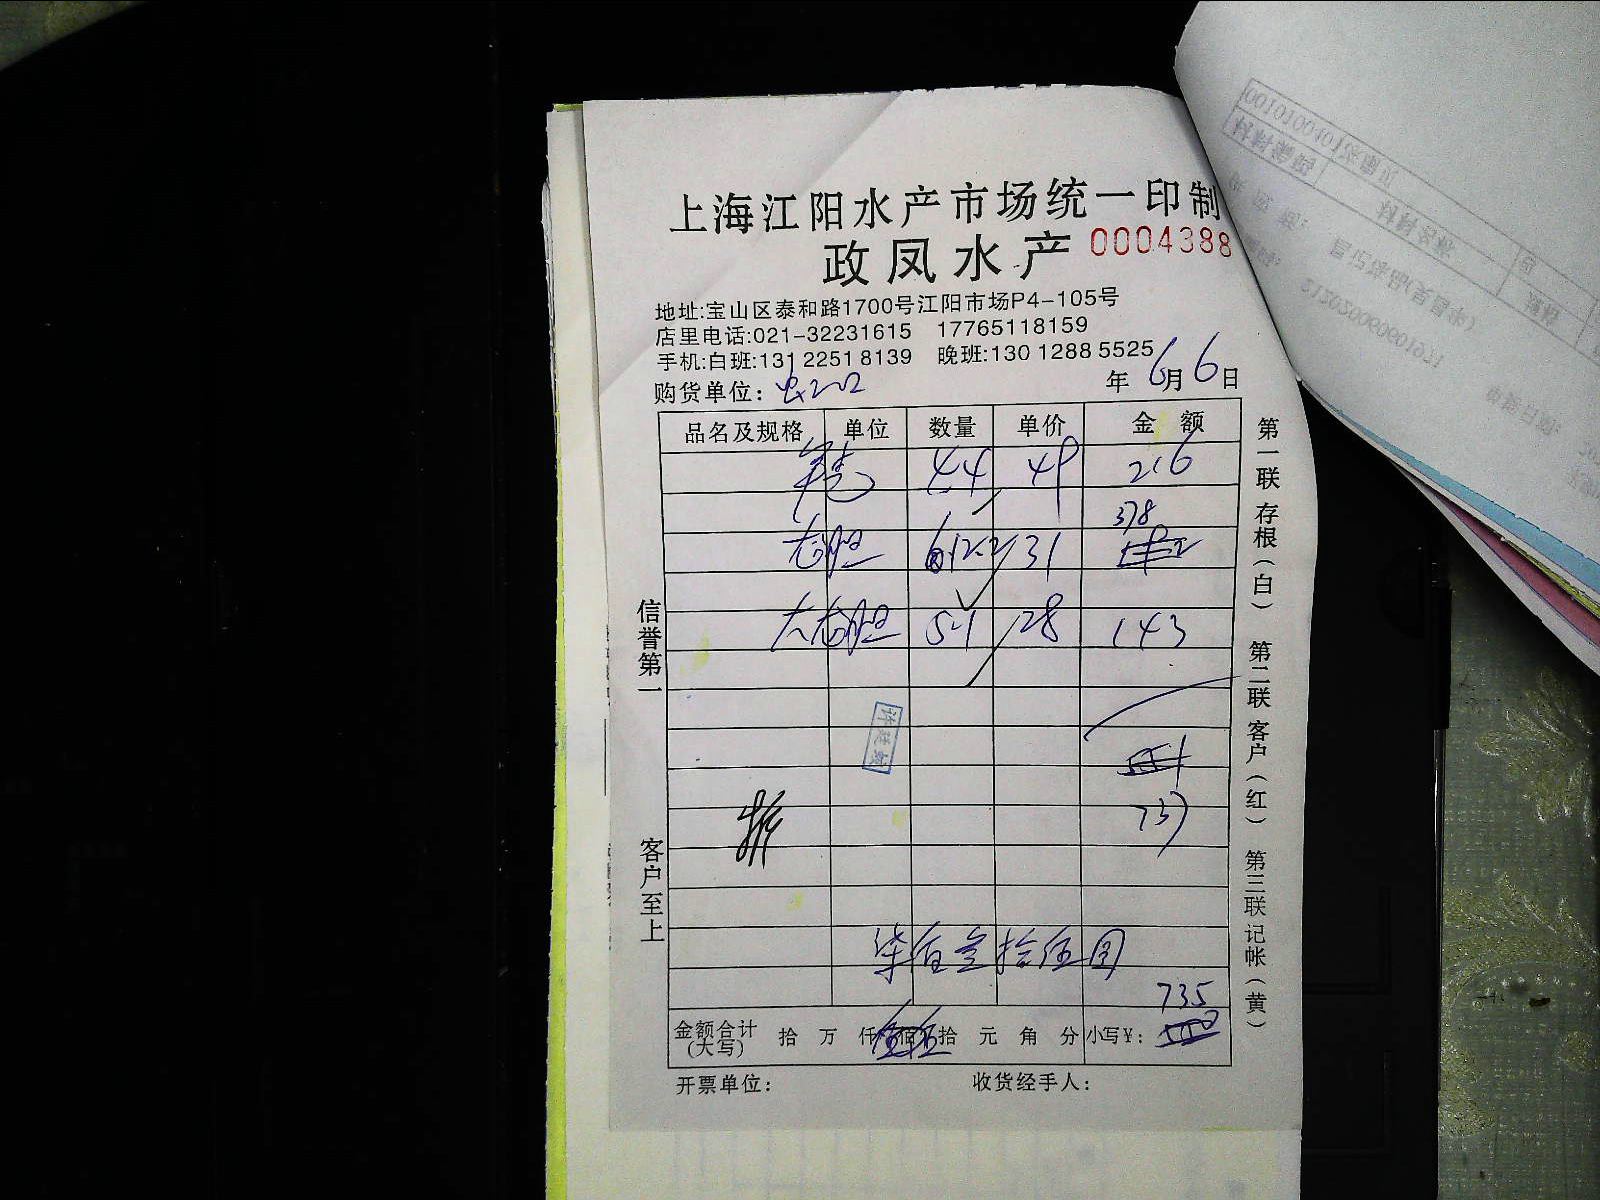 上海江阳水产市场统一印制
政凤水产 0004388
地址:宝山区泰和路1700号江阳市场P4-105号
店里电话:021-32231615 17765118159
手机:白班:131 2251 8139 晚班:130 1288 5525
购货单位:
年 6月6日
品名及规格 单位 数量 单价 金 额
4.4 49 216
378
老胆 12.2 31
大老胆 5.1 28 143
737
柒佰叁拾伍圆
735
金额合计(大写) 拾 万 仟 佰 拾 元 角 分 小写¥:
开票单位: 收货经手人:
信誉第一
客户至上
第一联 存根(白) 第二联 客户(红) 第三联 记帐(黄)